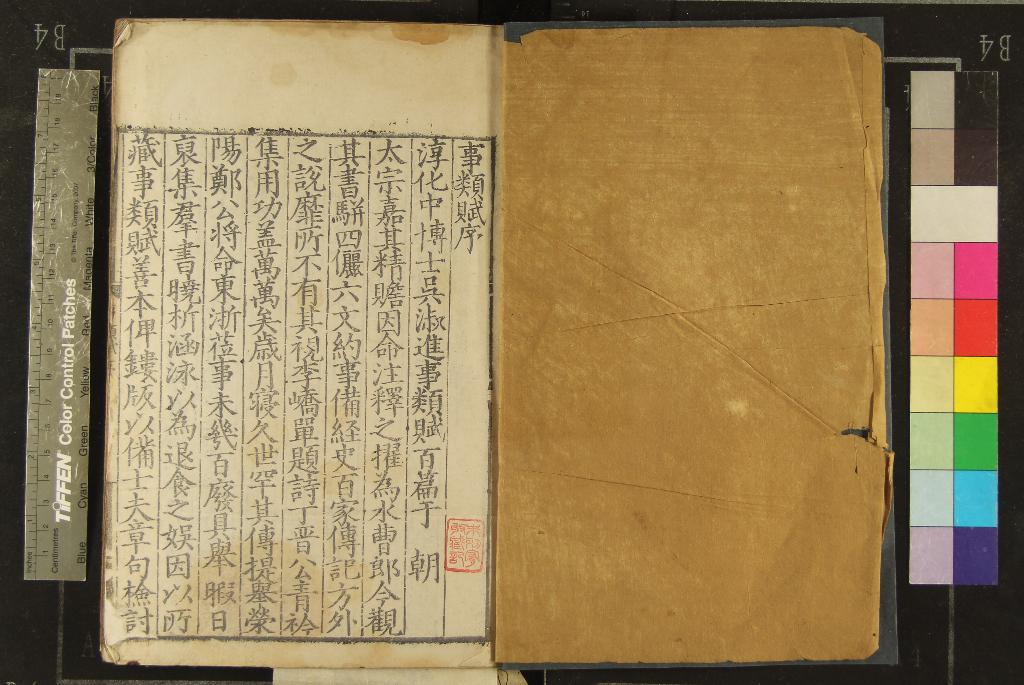 事類賦序
淳化中博士吳淑進事類賦百篇于　朝
太宗嘉其精贍因命注釋之擢為水曹郎今觀
其書駢四儷六文約事備経史百家傳記方外
之說靡所不有其視李嶠單題詩丁晋公青衿
集用功盖萬萬矣歳月寖久世罕其傳提舉榮
陽鄭公将命東浙莅事未幾百廢具舉暇日
裒集羣書曉析涵泳以為退食之娱因以所
藏事類賦善本俾鏤版以備士夫章句檢討
B4
B4
TIFFEN Color Control Patches
© The Tiffen Company, 2007
Inches
Centimetres
Blue
Cyan
Green
Yellow
Red
Magenta
White
3/Color
Black